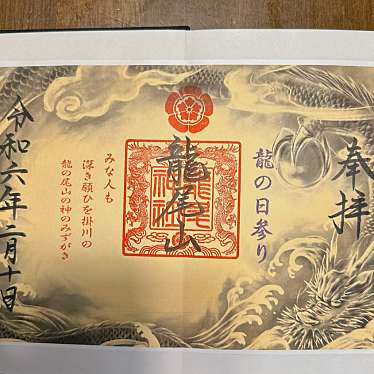 奉拝
龍の日参り
龍尾山
みな人も
深き願ひを掛川の
龍の尾山の神のみずがき
令和六年二月十日